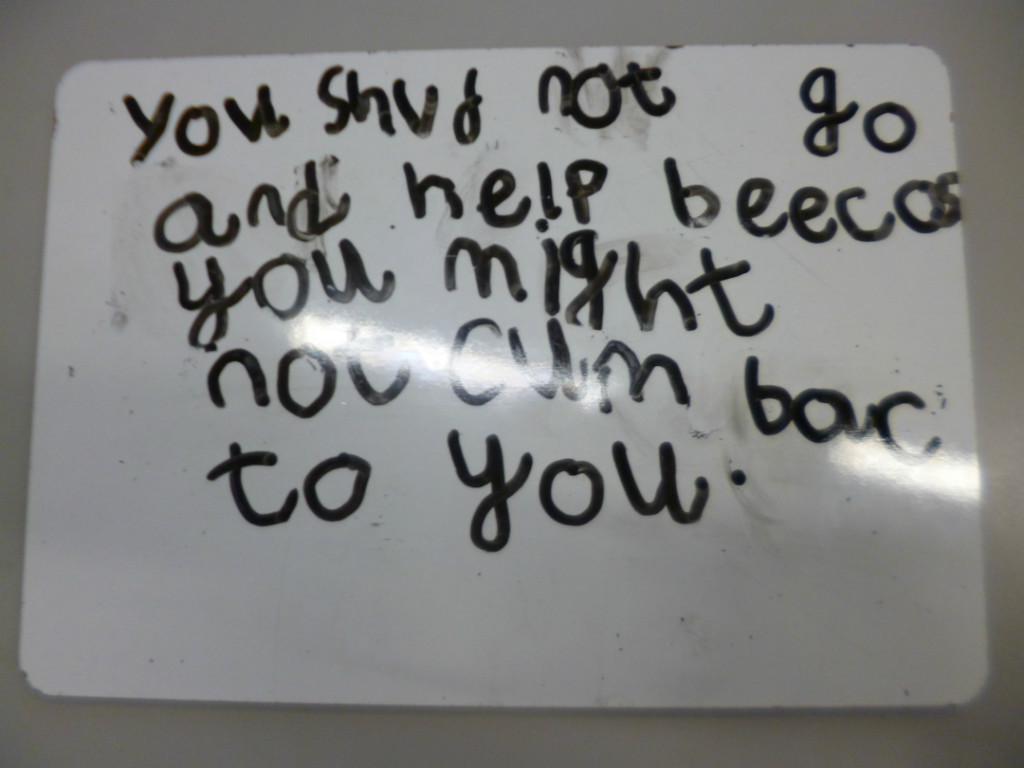 you shud not go
and help beecos
you might
not cum bac
to you.